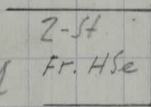 2-St
Fr. HSe